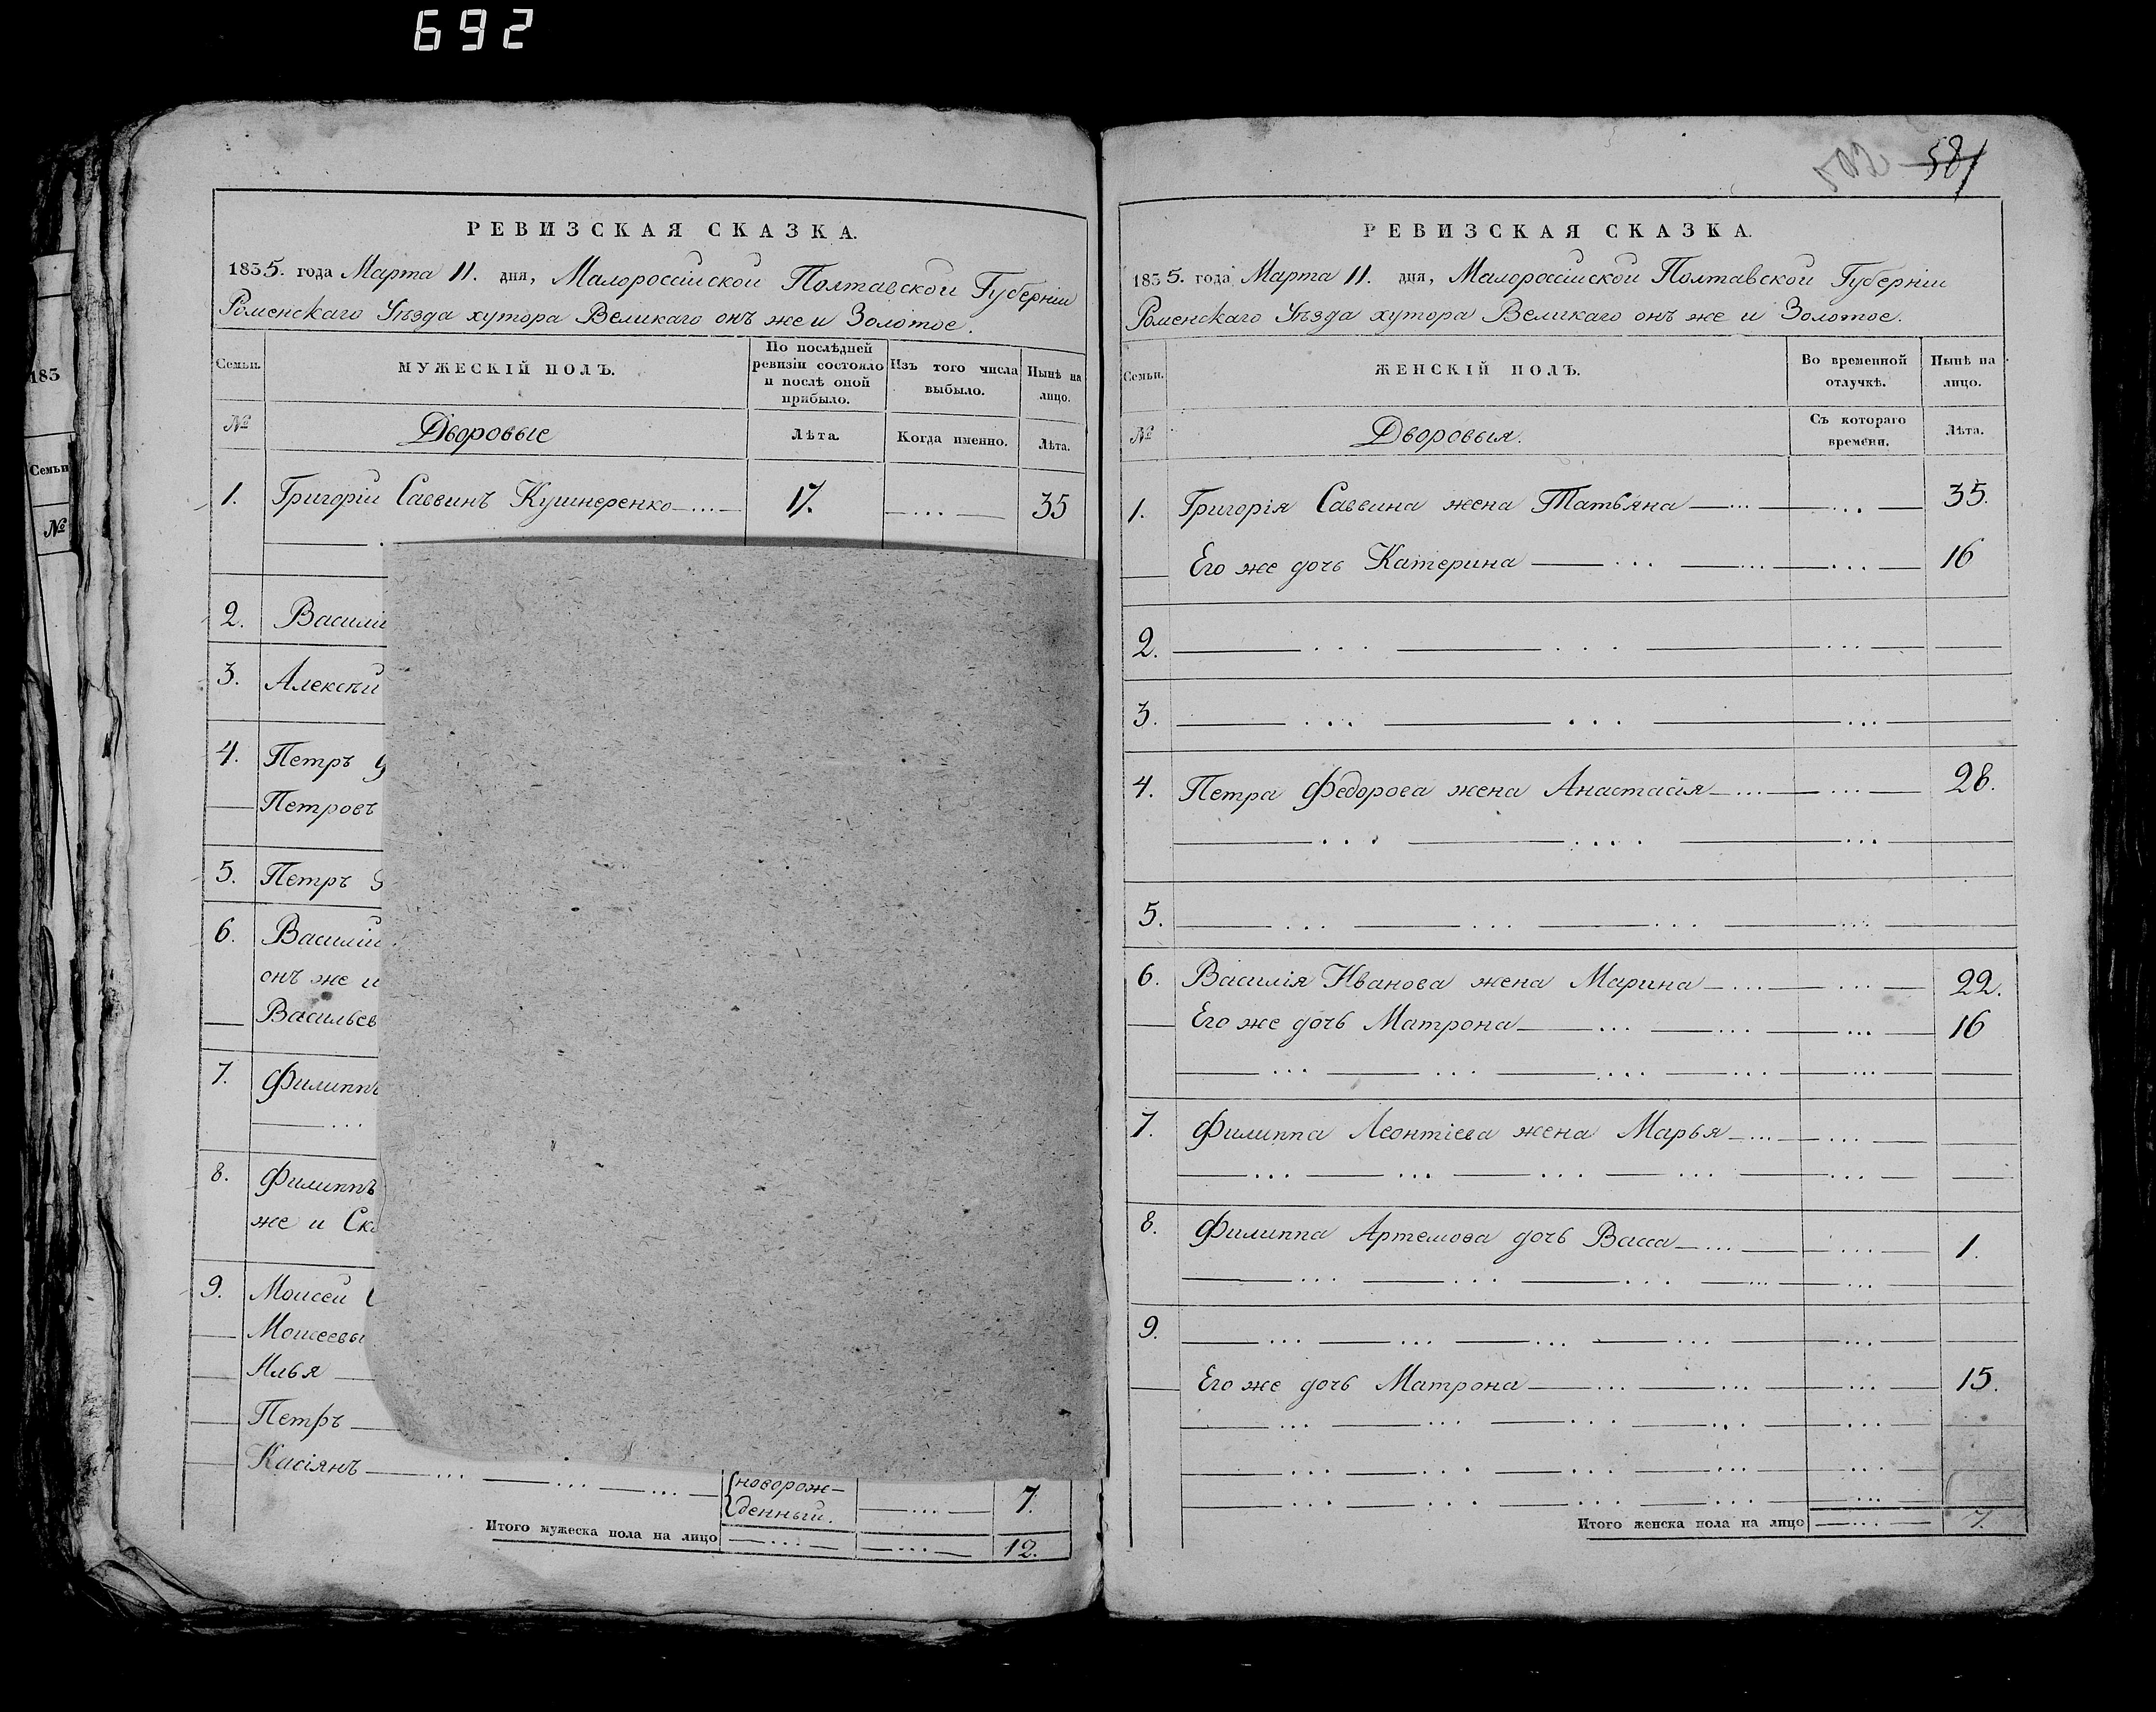 692
183
Семьи
№
РЕВИЗСКАЯ СКАЗКА.
1835. года Марта 11. дня, Малороссійской Полтавской Губерніи
Роменскаго Уѣзда хутора Великаго онъ же и Золотое.
Семьи.
МУЖЕСКІЙ ПОЛЪ.
По послѣдней ревизіи состояло и послѣ оной прибыло.
Изъ того числа выбыло.
Нынѣ на лицо.
№
Дворовые
Лѣта.
Когда именно.
Лѣта.
1. Григорій Саввинъ Кушнеренко 17. 35
2. Василі
3. Алексѣй
4. Петръ
Петровъ
5. Петръ
6. Василій
онъ же и
Васильев
7. Филиппъ
8. Филиппъ
же и Ск
9. Моисей
Моисеевы
Илья
Петръ
Касіянъ
новорож-
денный. 7.
Итого мужеска пола на лицо 12.
502 581
РЕВИЗСКАЯ СКАЗКА.
1835. года Марта 11. дня, Малороссійской Полтавской Губерніи
Роменскаго Уѣзда хутора Великаго онъ же и Золотое.
Семьи.
ЖЕНСКІЙ ПОЛЪ.
Во временной отлучкѣ.
Нынѣ на лицо.
№
Дворовыя.
Съ котораго времени.
Лѣта.
1. Григорія Саввина жена Татьяна 35.
Его же дочь Катерина 16
2.
3.
4. Петра Федорова жена Анастасія 28.
5.
6. Василія Иванова жена Марина 22.
Его же дочь Матрона 16
7. Филиппа Леонтіева жена Марья
8. Филиппа Артемова дочь Васса 1.
9.
Его же дочь Матрона 15.
Итого женска пола на лицо 7.